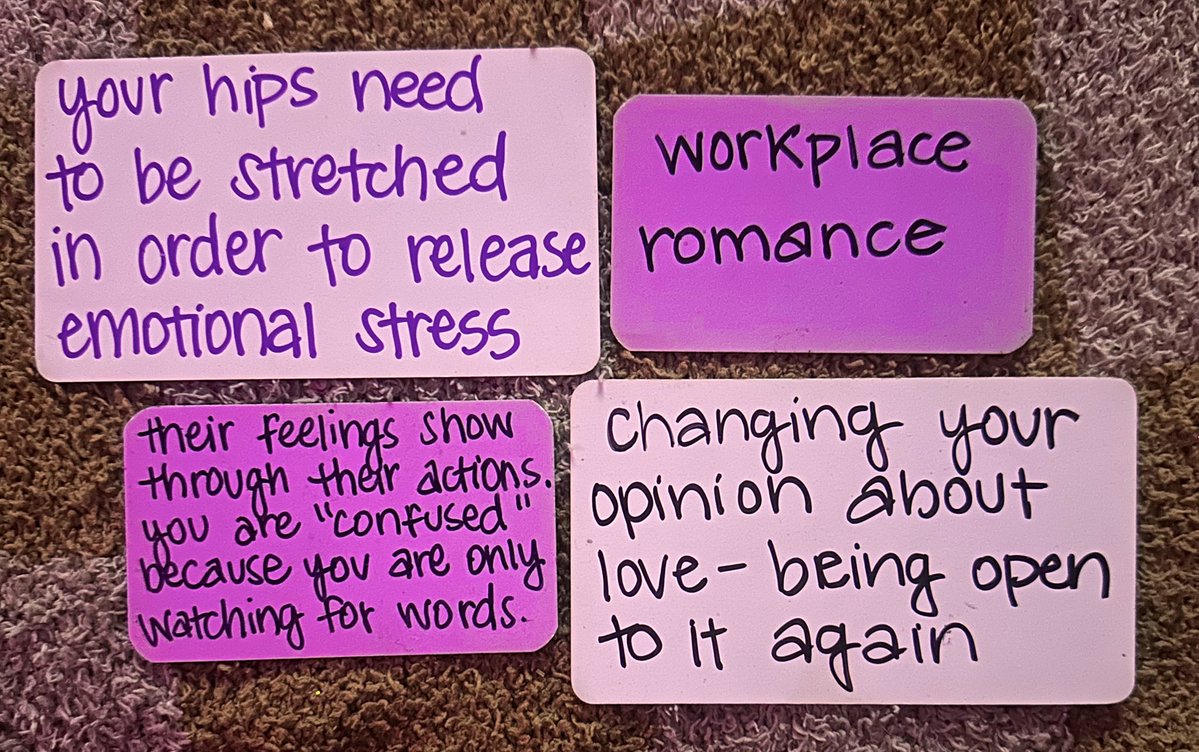 your hips need
to be stretched
in order to release
emotional stress
workplace
romance
their feelings show
through their actions.
you are "confused"
because you are only
watching for words.
changing your
opinion about
love - being open
to it again